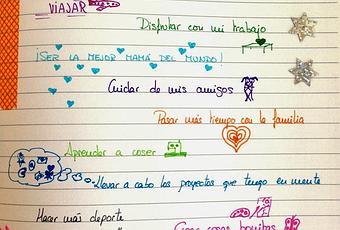 VIAJAR
Disfrutar con mi trabajo
¡SER LA MEJOR MAMÁ DEL MUNDO!
Cuidar de mis amigos
Pasar más tiempo con la familia
Aprender a coser
Llevar a cabo los proyectos que tengo en mente
Hacer más deporte
Crear cosas bonitas